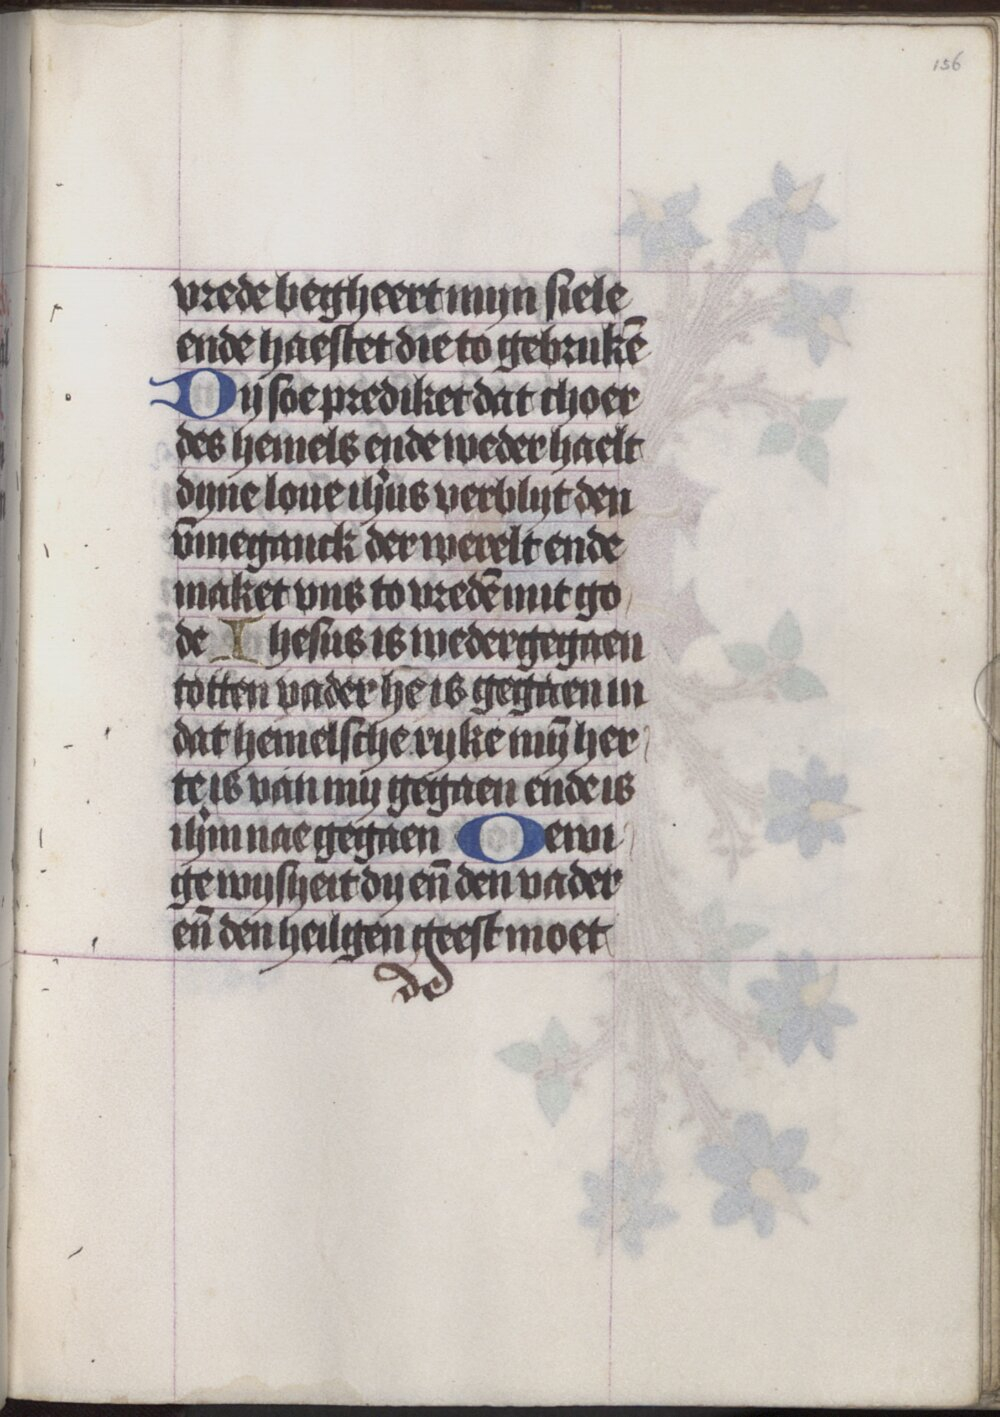 156
vrede begheert mijn siele
ende haestet die to gebrukē
Dij soe prediket dat choer
des hemels ende weder haelt
dyne loue ihūs verblijt den
v̄mneganck der werelt ende
maket vns to vredē mit go
de Ihesus is wedergegaen
totten vader he is gegaen in
dat hemelsche ryke mÿ her
te is van mij gegaen ende is
ihm̄ nae gegaen O ewi
ge wijsheit du eñ den vader
eñ den heiligen geest moet
de